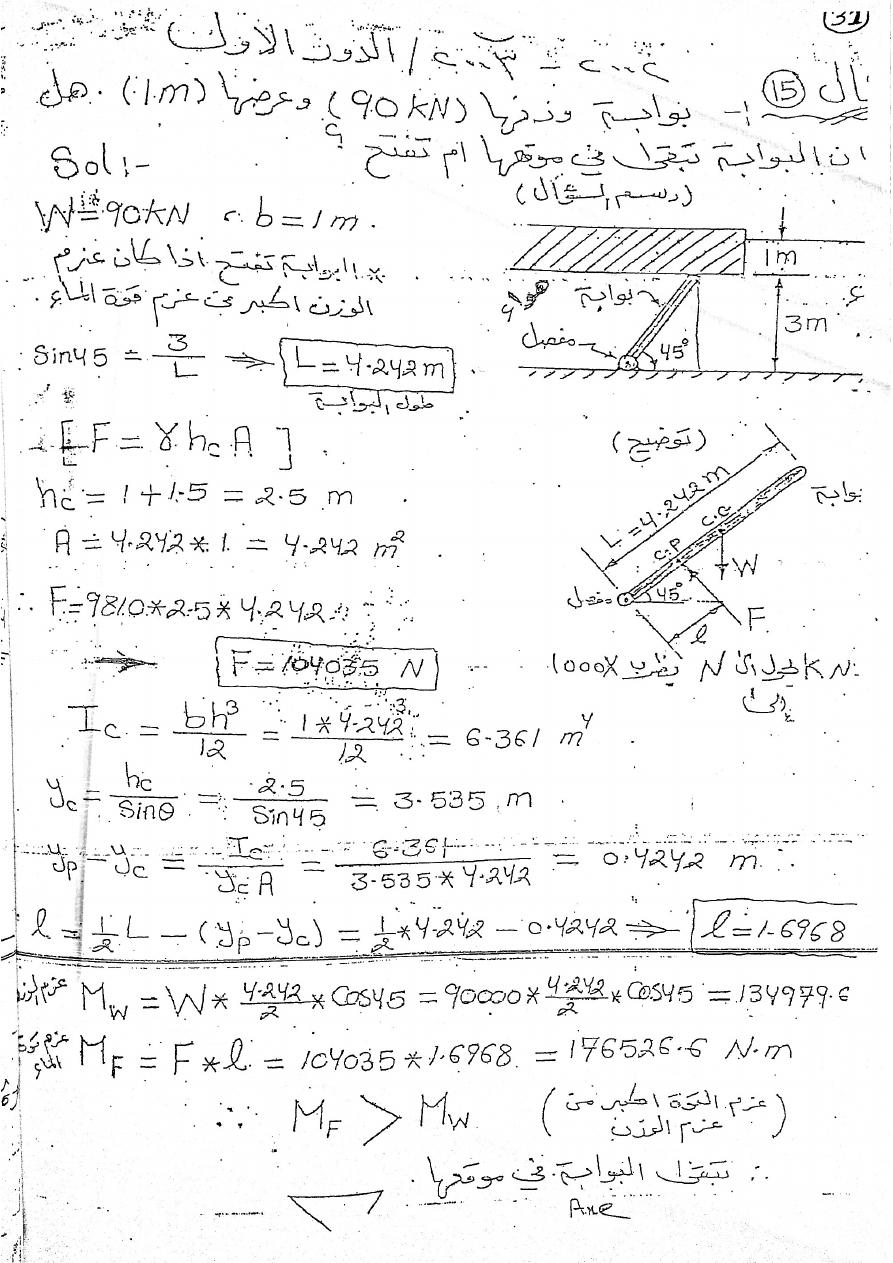 31
٢٠٠٢ - ٢٠٠٣ / الدور الأول
15 أ- بوابة وزنها (90 kN) وعرضها (1m). هل
ان البوابة تبقى في موقعها ام تفتح ؟
(رسم السؤال)
Sol:-
W = 90 kN , b = 1m.
* البوابة تفتح اذا كان عزم
الوزن اكبر من عزم قوة الماء.
1m
بوابة
3m
مفصل
45°
Sin45 = 3/L ⇒ L = 4.242 m
طول البوابة
[F = γ hc A]
(توضيح)
hc = 1 + 1.5 = 2.5 m
A = 4.242 * 1 = 4.242 m²
L = 4.242 m
بوابة
c.G
c.P
W
مفصل
45°
F
l
∴ F = 9810*2.5*4.242
→ F = 104035 N
kN يحول الى N يضرب x1000
Ic = bh³/12 = 1*4.242³/12 = 6.361 m⁴
yc = hc/Sinθ = 2.5/Sin45 = 3.535 m
yp - yc = Ic/yc A = 6.361/3.535*4.242 = 0.4242 m
l = 1/2 L - (yp - yc) = 1/2 * 4.242 - 0.4242 ⇒ l = 1.6968
عزم الوزن Mw = W * 4.242/2 * Cos45 = 90000 * 4.242/2 * Cos45 = 134979.6
عزم قوة الماء MF = F * l = 104035 * 1.6968 = 176526.6 N.m
∴ MF > Mw (عزم القوة اكبر من عزم الوزن)
∴ تبقى البوابة في موقعها.
Ans